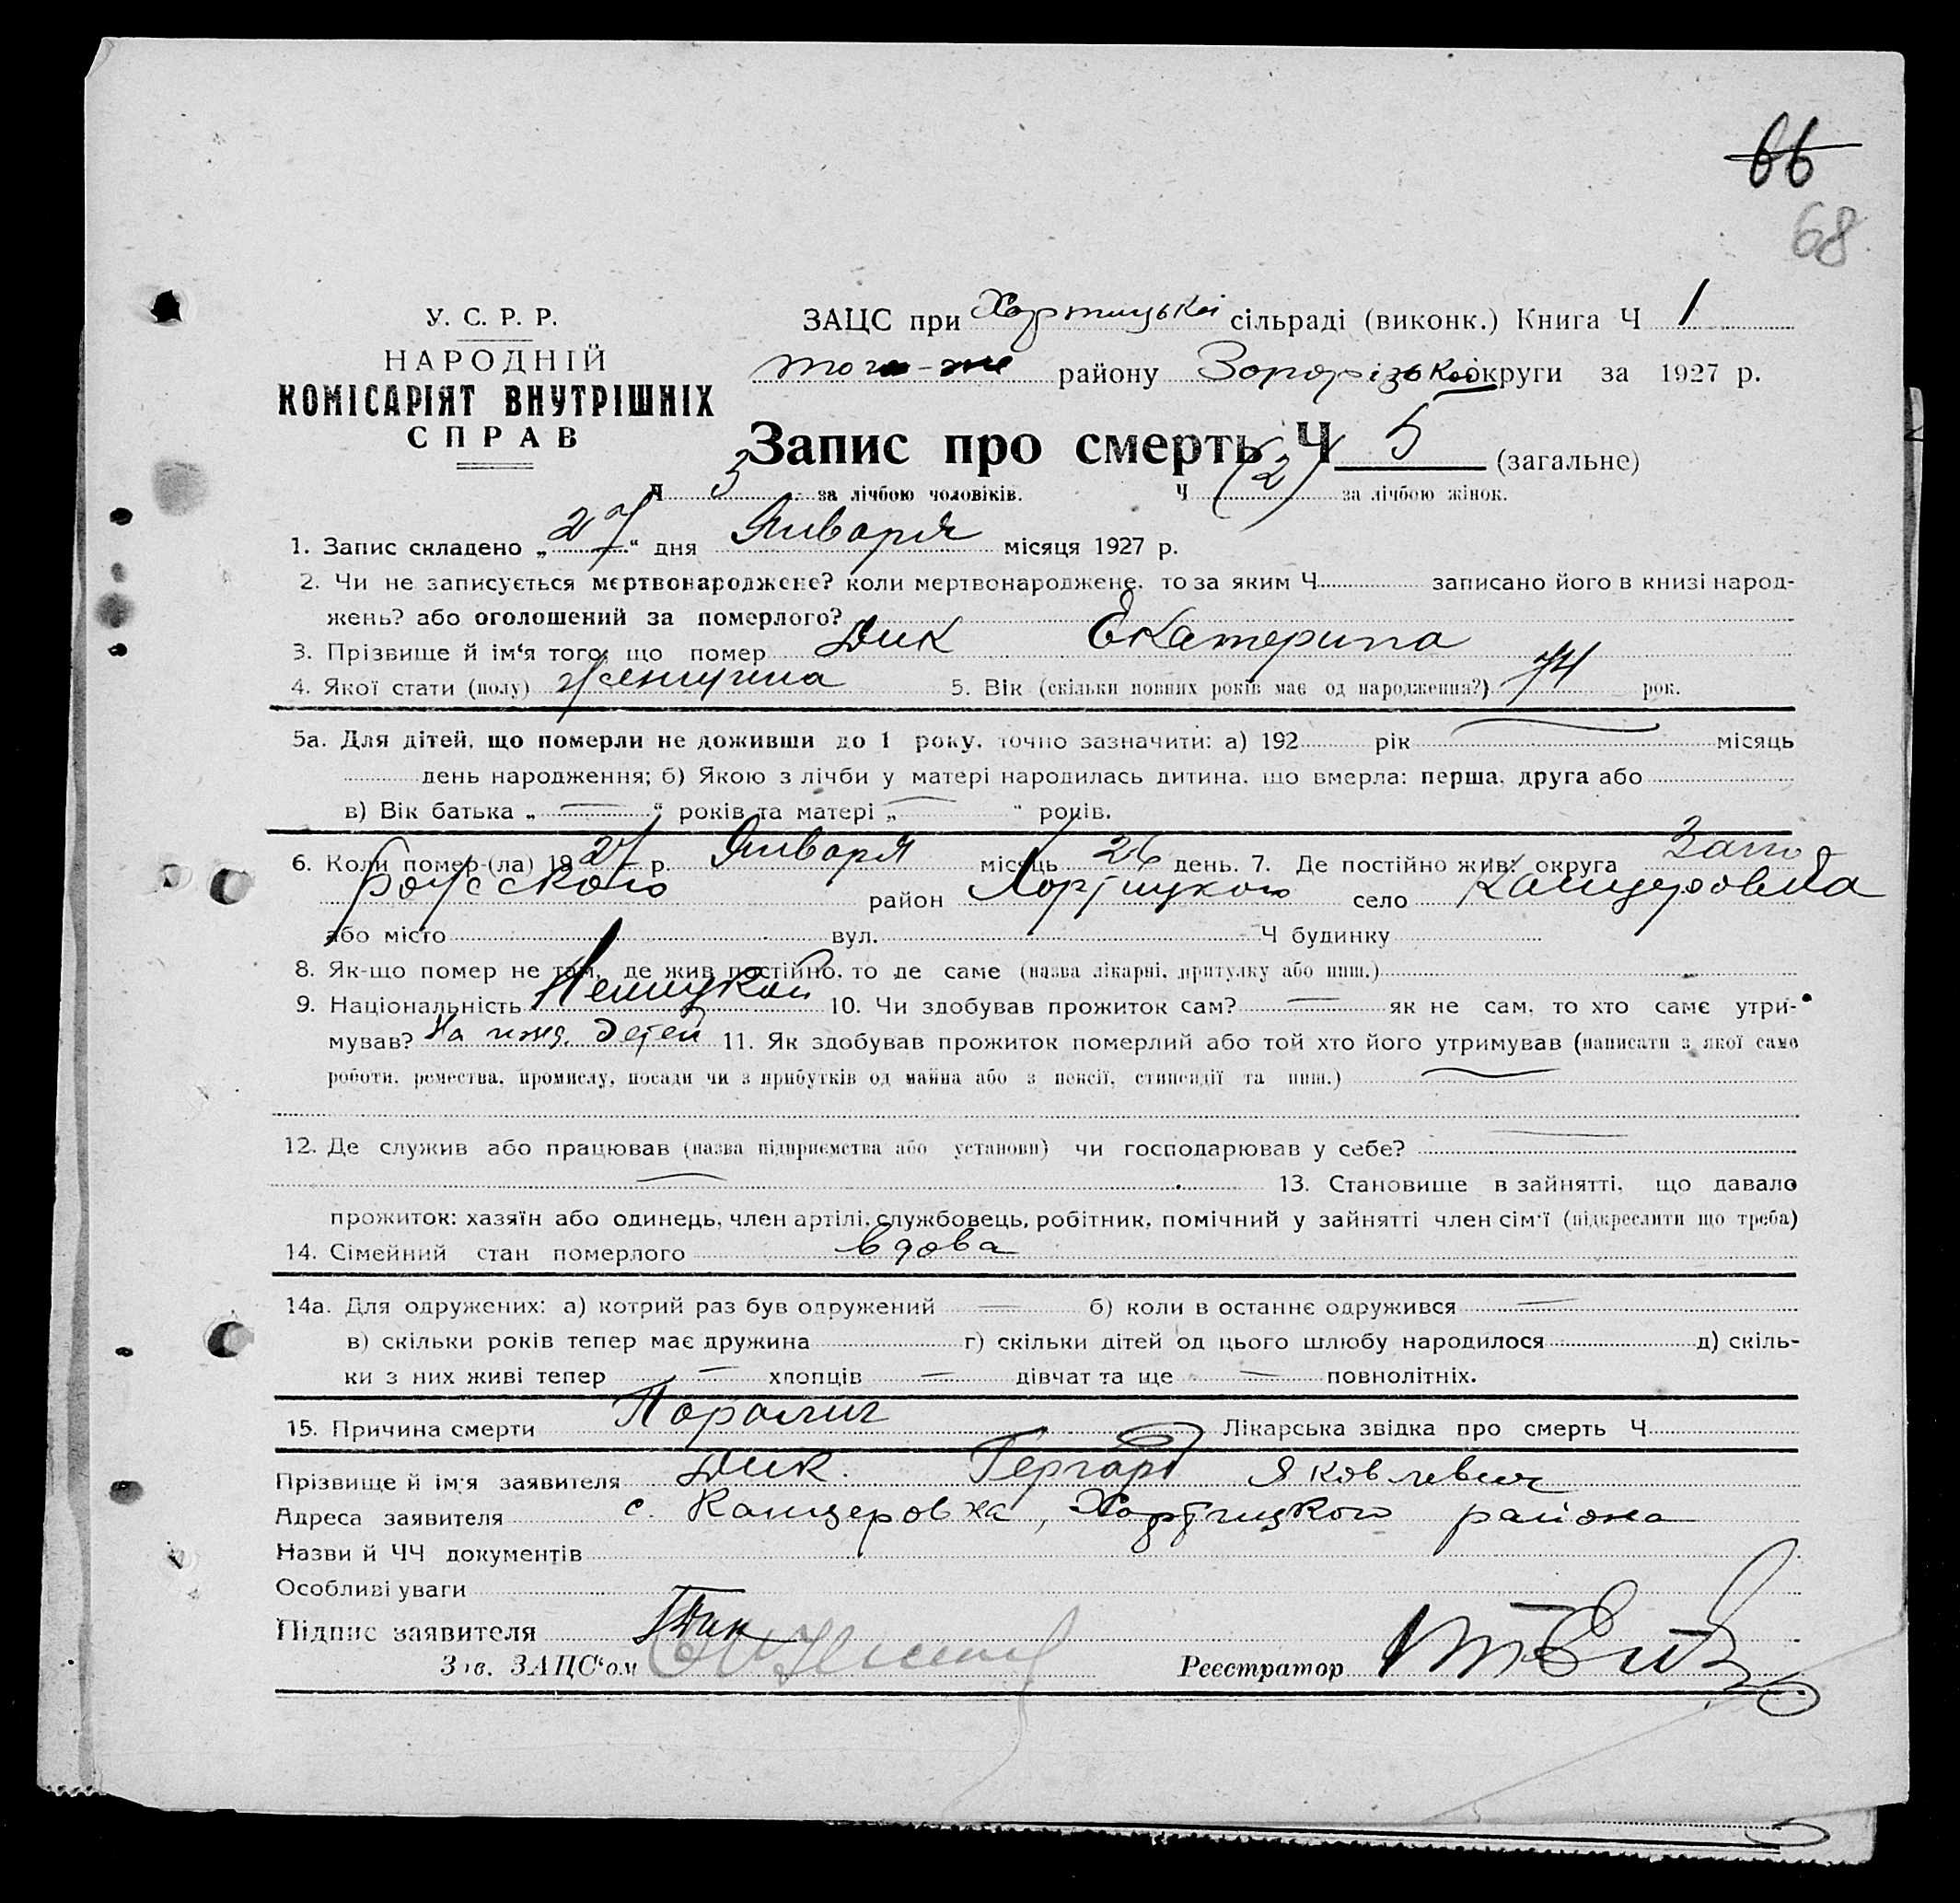 66
68
У. С. Р. Р.
НАРОДНІЙ
КОМІСАРІЯТ ВНУТРІШНІХ
СПРАВ
ЗАЦС при Хортицькій сільраді (виконк.) Книга Ч 1
того-же району Запорізької округи за 1927 р.
Запис про смерть Ч 5 (загальне)
Ч 3 за лічбою чоловіків. Ч (2) за лічбою жінок.
1. Запис складено „27“ дня Января місяця 1927 р.
2. Чи не записується мертвонароджене? коли мертвонароджене, то за яким Ч записано його в книзі народ-
жень? або оголошений за померлого?
3. Прізвище й ім'я того, що помер Дик Екатерина
4. Якої стати (полу) Женщина 5. Вік (скільки повних років має од народження?) 74 рок.
5а. Для дітей, що померли не доживши до 1 року, точно зазначити: а) 192 рік місяць
день народження; б) Якою з лічби у матері народилась дитина, що вмерла: перша, друга або
в) Вік батька „ “ років та матері „ “ років.
6. Коли помер-(ла) 1927 р. Января місяць 26 день. 7. Де постійно жив: округа Запо
рожского район Хортицкого село Канцеровка
або місто вул. Ч будинку
8. Як-що помер не там, де жив постійно, то де саме (назва лікарні, притулку або инш.)
9. Національність Немецкой 10. Чи здобував прожиток сам? — як не сам, то хто саме утри-
мував? На ижд. детей 11. Як здобував прожиток померлий або той хто його утримував (написати з якої саме
роботи, ремества, промислу, посади чи з прибутків од майна або з пенсії, стипендії та инш.)
12. Де служив або працював (назва підприємства або установи) чи господарював у себе?
13. Становище в зайнятті, що давало
прожиток: хазяїн або одинець, член артілі, службовець, робітник, помічний у зайнятті член сім'ї (підкреслити що треба)
14. Сімейний стан померлого вдова
14а. Для одружених: а) котрий раз був одружений — б) коли в останнє одружився —
в) скільки років тепер має дружина г) скільки дітей од цього шлюбу народилося д) скіль-
ки з них живі тепер — хлопців — дівчат та ще — повнолітніх.
15. Причина смерти Паралич Лікарська звідка про смерть Ч
Прізвище й ім'я заявителя Дик. Гергард Яковлевич
Адреса заявителя с. Канцеровка, Хортицкого района
Назви й ЧЧ документів
Особливі уваги
Підпис заявителя Г Дик
Зав. ЗАЦС'ом
Реєстратор